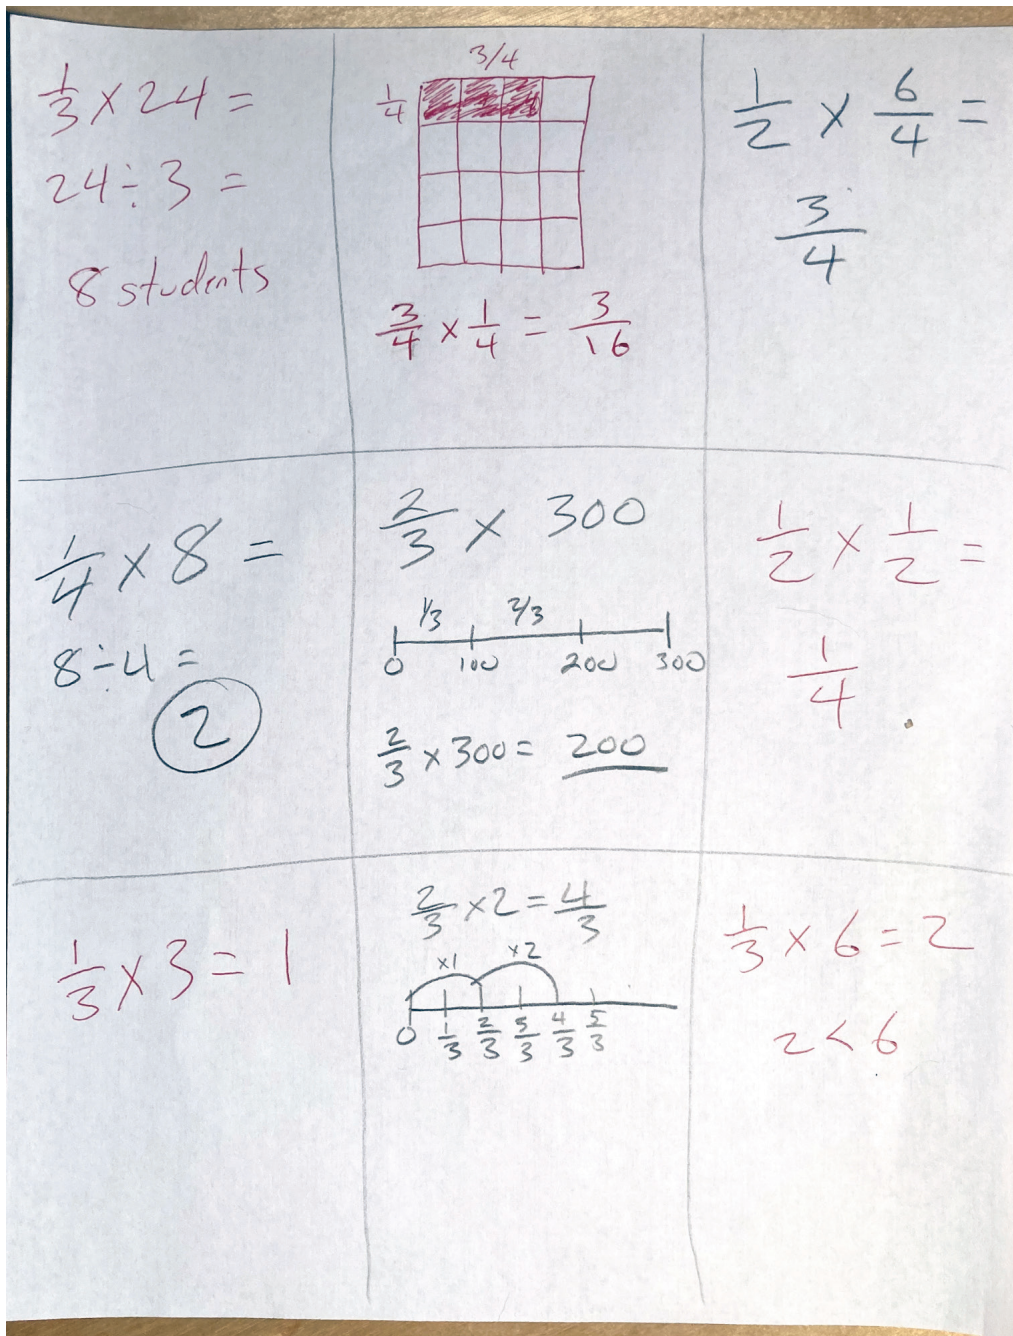 1/3 × 24 =
24 ÷ 3 =
8 students
3/4
1/4
3/4 × 1/4 = 3/16
1/2 × 6/4 =
3/4
1/4 × 8 =
8 ÷ 4 =
2
2/3 × 300
1/3 2/3
0 100 200 300
2/3 × 300 = 200
1/2 × 1/2 =
1/4
1/3 × 3 = 1
2/3 × 2 = 4/3
×1 ×2
0 1/3 2/3 5/3 4/3 5/3
1/3 × 6 = 2
2 < 6